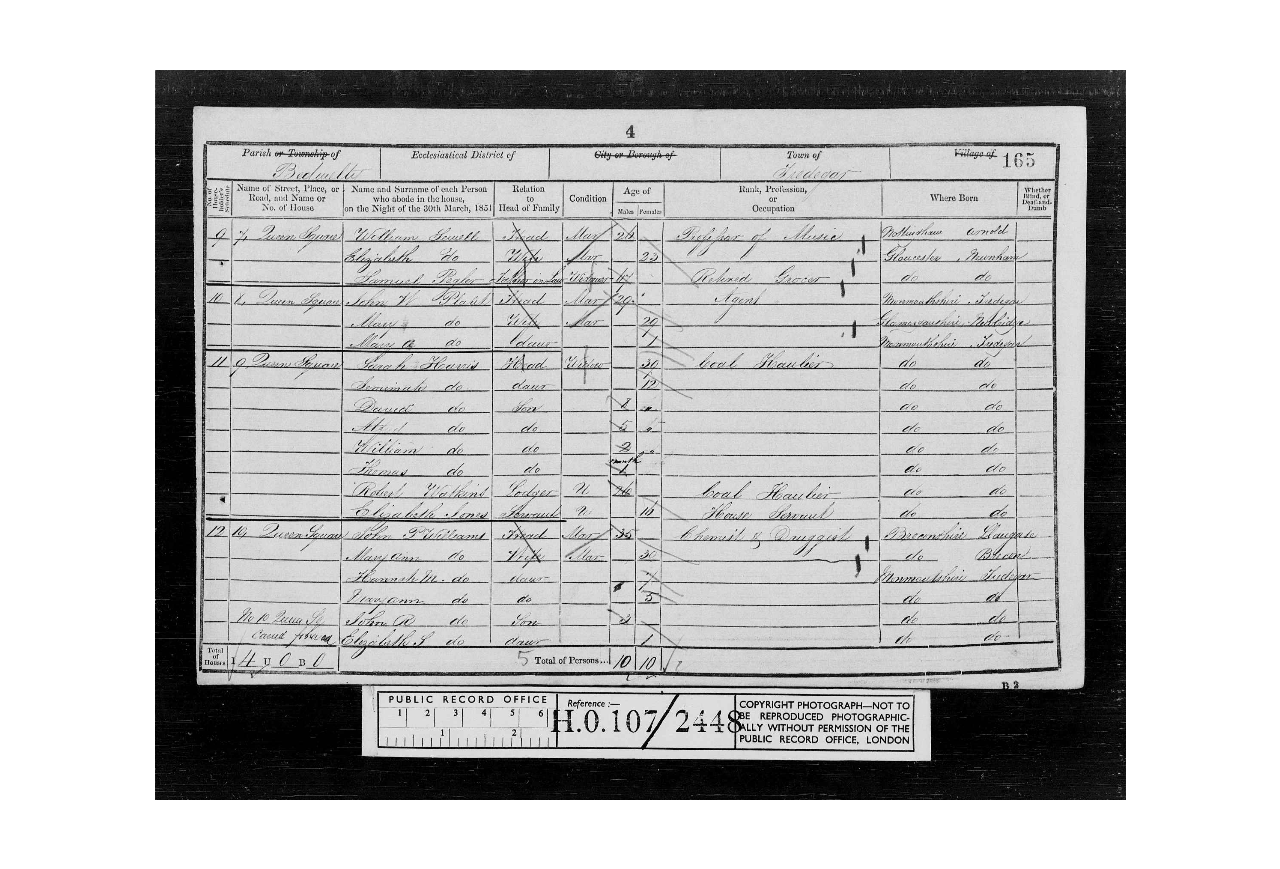 4
Parish or Township of Ecclesiastical District of City or Borough of Town of Village of 165
Bedwellty Tredegar
No. of House-holder's Schedule Name of Street, Place, or Road, and Name or No. of House Name and Surname of each Person who abode in the house, on the Night of the 30th March, 1851 Relation to Head of Family Condition Age of Males Females Rank, Profession, or Occupation Where Born Whether Blind, or Deaf-and-Dumb
9 7, Queen Square William Head Mar 26 Professor of Music Arnold
Elizabeth do Wife Mar 23 Gloucester
Samuel Father in Law Widower 67 Retired Grocer do do
10 Queen Square John W Plaist Head Mar 29 Agent Monmouthshire Tredegar
Mary do Wife Mar 29 Glamorganshire Newbridge
Mary A do daur 1 Monmouthshire Tredegar
11 9 Queen Square Sarah Harris Head Widow 30 Coal Haulier do do
Jemimah do daur 12 do do
David do Son do do
do do 5 do do
William do do 2 do do
Thomas do do month 1 do do
Robert Watkins Lodger U 26 Coal Haulier do do
Elizabeth Jones Servant U House Servant do do
12 10, Queen Square John T Williams Head Mar 35 Chemist & Druggist Breconshire
Mary ann do Wife Mar 30 do Brecon
Hannah M. do daur 7 Monmouthshire Tredegar
Mary ann do do 5 do do
No 10 Queen Sq John R do Son 3 do do
Carried forward Elizabeth S do daur 1 do do
Total of Houses I 4 U 0 B 0 5 Total of Persons... 10 10
B 2
PUBLIC RECORD OFFICE
1 2 3 4 5 6
1 2
Reference :—
H.O.107/2448
COPYRIGHT PHOTOGRAPH—NOT TO
BE REPRODUCED PHOTOGRAPHIC-
ALLY WITHOUT PERMISSION OF THE
PUBLIC RECORD OFFICE, LONDON